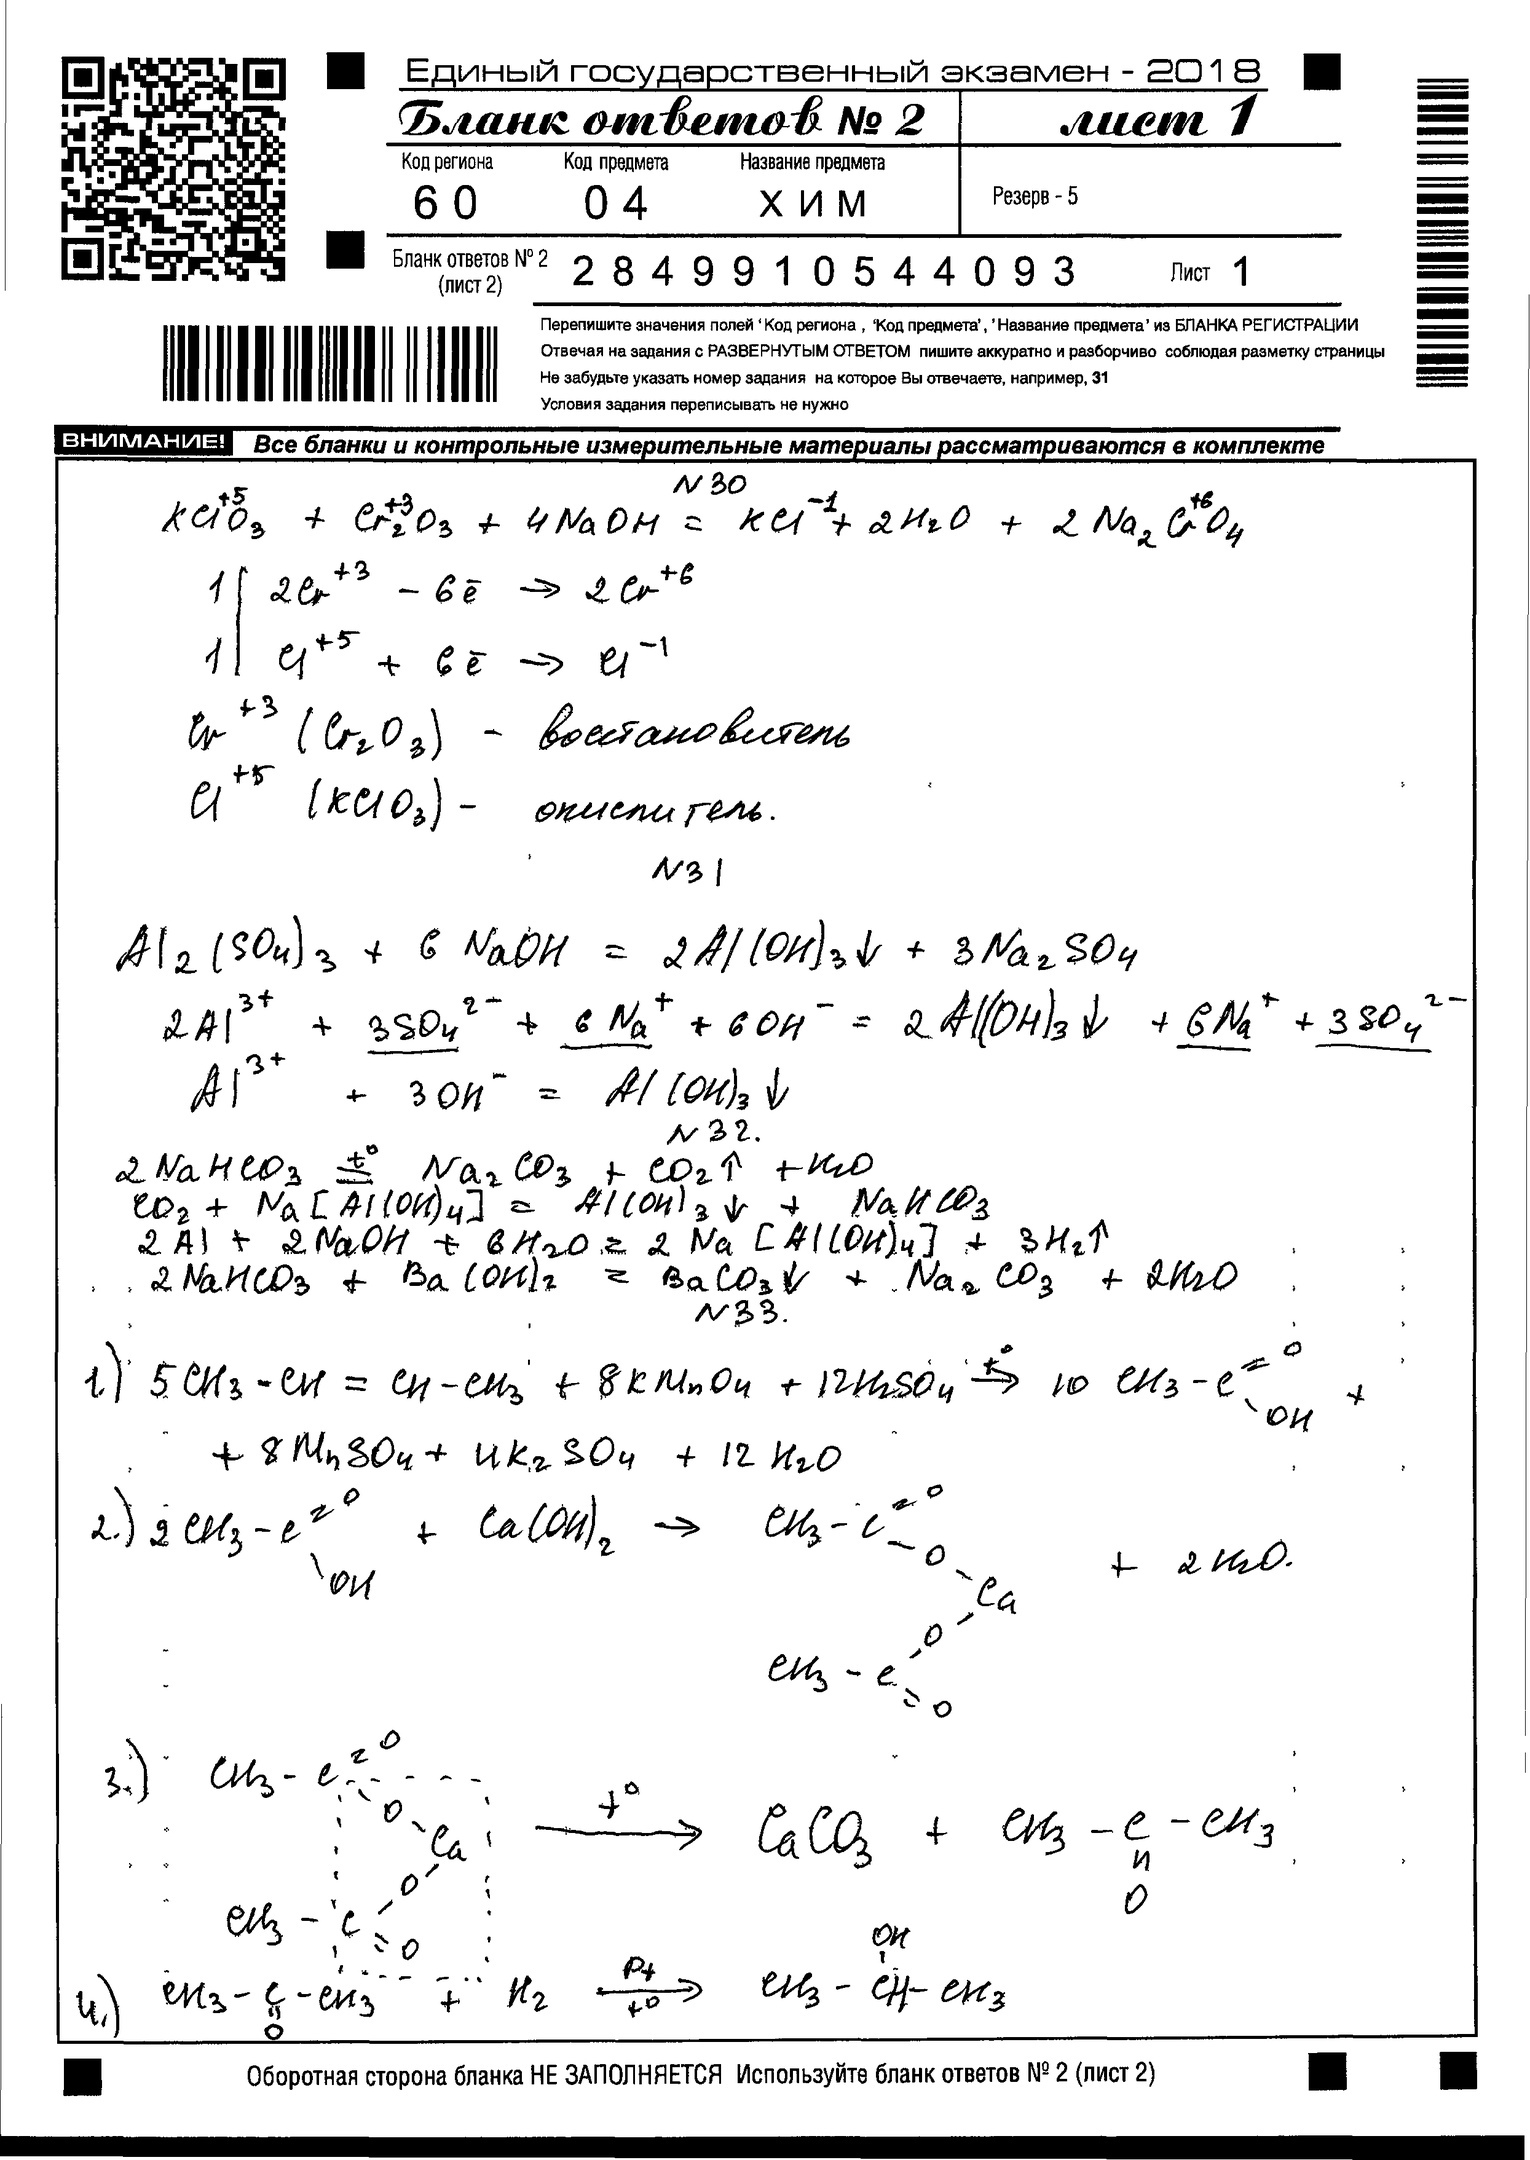 Единый государственный экзамен - 2018
Бланк ответов № 2 лист 1
Код региона Код предмета Название предмета
60 04 ХИМ Резерв - 5
Бланк ответов № 2 (лист 2) 2849910544093 Лист 1
Перепишите значения полей ‘Код региона , ‘Код предмета’, ’Название предмета’ из БЛАНКА РЕГИСТРАЦИИ
Отвечая на задания с РАЗВЕРНУТЫМ ОТВЕТОМ пишите аккуратно и разборчиво соблюдая разметку страницы
Не забудьте указать номер задания на которое Вы отвечаете, например, 31
Условия задания переписывать не нужно
ВНИМАНИЕ! Все бланки и контрольные измерительные материалы рассматриваются в комплекте
N30
KCl⁺⁵O₃ + Cr₂⁺³O₃ + 4NaOH = KCl⁻¹ + 2H₂O + 2Na₂Cr⁺⁶O₄
1| 2Cr⁺³ – 6ē → 2Cr⁺⁶
1| Cl⁺⁵ + 6ē → Cl⁻¹
Cr⁺³ (Cr₂O₃) – восстановитель
Cl⁺⁵ (KClO₃) – окислитель.
N31
Al₂(SO₄)₃ + 6NaOH = 2Al(OH)₃↓ + 3Na₂SO₄
2Al³⁺ + 3SO₄²⁻ + 6Na⁺ + 6OH⁻ = 2Al(OH)₃↓ + 6Na⁺ + 3SO₄²⁻
Al³⁺ + 3OH⁻ = Al(OH)₃↓
N32.
2NaHCO₃ =t°= Na₂CO₃ + CO₂↑ + H₂O
CO₂ + Na[Al(OH)₄] = Al(OH)₃↓ + NaHCO₃
2Al + 2NaOH + 6H₂O = 2Na[Al(OH)₄] + 3H₂↑
2NaHCO₃ + Ba(OH)₂ = BaCO₃↓ + Na₂CO₃ + 2H₂O
N33.
1.) 5CH₃-CH=CH-CH₃ + 8KMnO₄ + 12H₂SO₄ t°→ 10CH₃-C=O -OH +
+ 8MnSO₄ + 4K₂SO₄ + 12H₂O
2.) 2CH₃-C=O -OH + Ca(OH)₂ → CH₃-C=O -O-Ca-O- CH₃-C=O + 2H₂O.
3.) CH₃-C=O -O-Ca-O- CH₃-C=O t°→ CaCO₃ + CH₃-C-CH₃ =O
4.) CH₃-C-CH₃ =O + H₂ Pt t°→ CH₃-CH-CH₃ OH
Оборотная сторона бланка НЕ ЗАПОЛНЯЕТСЯ Используйте бланк ответов № 2 (лист 2)